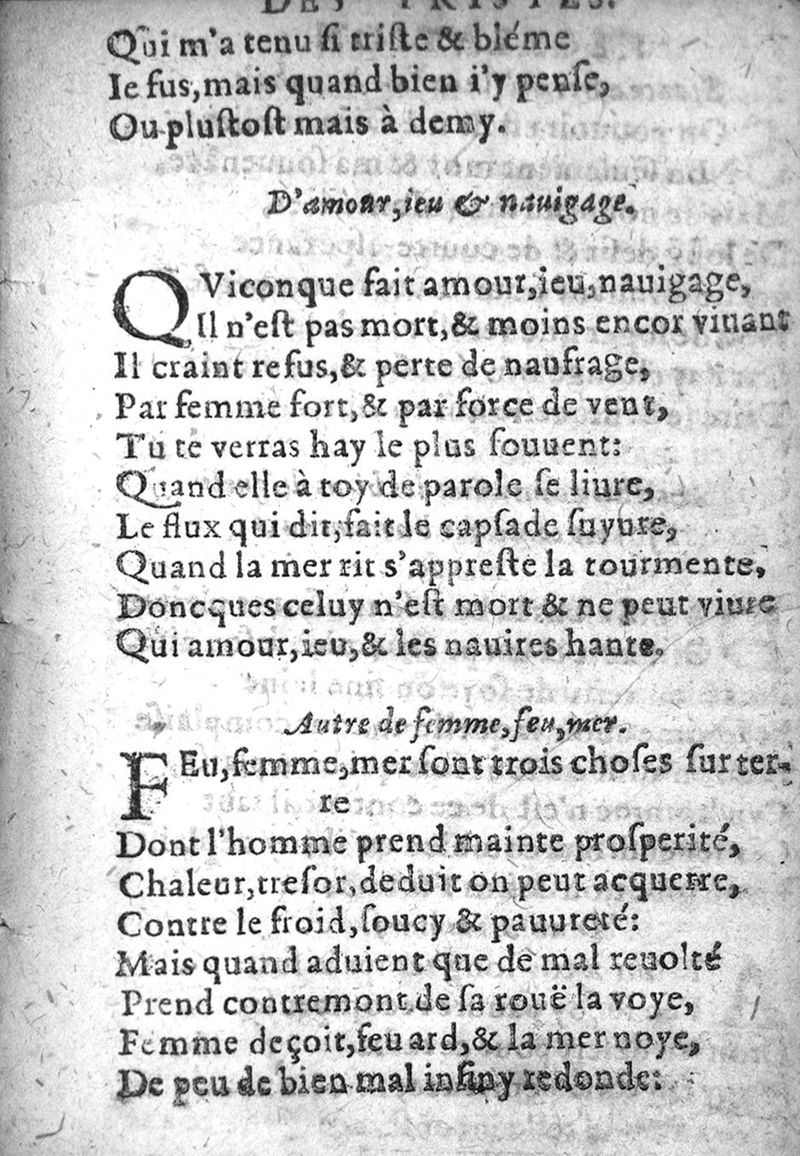 DES TRISTES.
Qui m'a tenu ſi triſte & bléme
Ie fus, mais quand bien i'y penſe,
Ou pluſtoſt mais à demy.
D'amour, ieu & nauigage.
QViconque fait amour, ieu, nauigage,
Il n'eſt pas mort, & moins encor viuant
Il craint refus, & perte de naufrage,
Par femme fort, & par force de vent,
Tu te verras hay le plus ſouuent:
Quand elle à toy de parole ſe liure,
Le flux qui dit, fait le capſade ſuyure,
Quand la mer rit s'appreſte la tourmente,
Doncques celuy n'eſt mort & ne peut viure
Qui amour, ieu, & les nauires hante.
Autre de femme, feu, mer.
FEu, femme, mer ſont trois choſes ſur ter-
re
Dont l'homme prend mainte proſperité,
Chaleur, treſor, deduit on peut acquerre,
Contre le froid, ſoucy & pauureté:
Mais quand aduient que de mal reuolté
Prend contremont de ſa rouë la voye,
Femme deçoit, feu ard, & la mer noye,
De peu de bien mal infiny redonde: